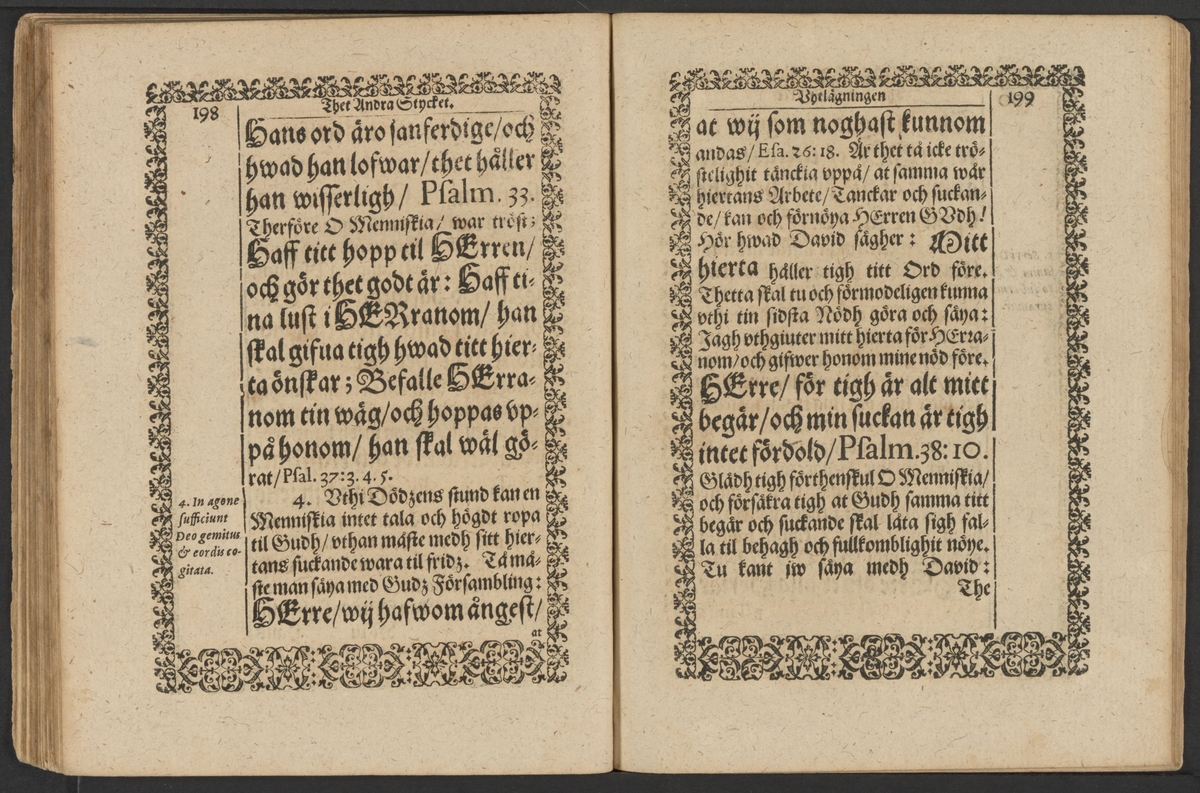 198
Thet Andra Stycket.
Hans ord äro sanferdige/och
hwad han lofwar/thet håller
han wisserligh/ Psalm. 33.
Therföre O Menniskia/ war tröst;
Haff titt hopp til HErren/
och gör thet godt är: Haff ti-
na lust i HERranom/ han
skal gifua tigh hwad titt hier-
ta önskar; Befalle HErra-
nom tin wäg/och hoppas vp-
på honom/ han skal wäl gö-
rat/Psal. 37:3. 4. 5.
4. In agone
sufficiunt
Deo gemitus
& cordis co-
gitata.
4. Vthi Dödzens stund kan en
Menniskia intet tala och högdt ropa
til Gudh/vthan måste medh sitt hier-
tans suckande wara til fridz. Tå må-
ste man säya med Gudz Försambling:
HErre/wij hafwom ångest/
at
Vthlägningen
199
at wij som noghast kunnom
andas/Esa. 26:18. Är thet tå icke trö-
stelighit tänckia vppå/at samma wår
hiertans Arbete/Tanckar och suckan-
de/kan och förnöya HErren GUdh!
Hör hwad David sägher: Mitt
hierta håller tigh titt Ord före.
Thetta skal tu och förmodeligen kunna
vthi tin sidsta Nödh göra och säya:
Jagh vthgiuter mitt hierta för HErra-
nom/och gifwer honom mine nöd före.
HErre/ för tigh är alt mitt
begär/och min suckan är tigh
intet fördold/Psalm.38:10.
Glädh tigh förthenskul O Menniskia/
och försäkra tigh at Gudh samma titt
begär och suckande skal låta sigh fal-
la til behagh och fullkomblighit nöye.
Tu kant jw säya medh David:
The